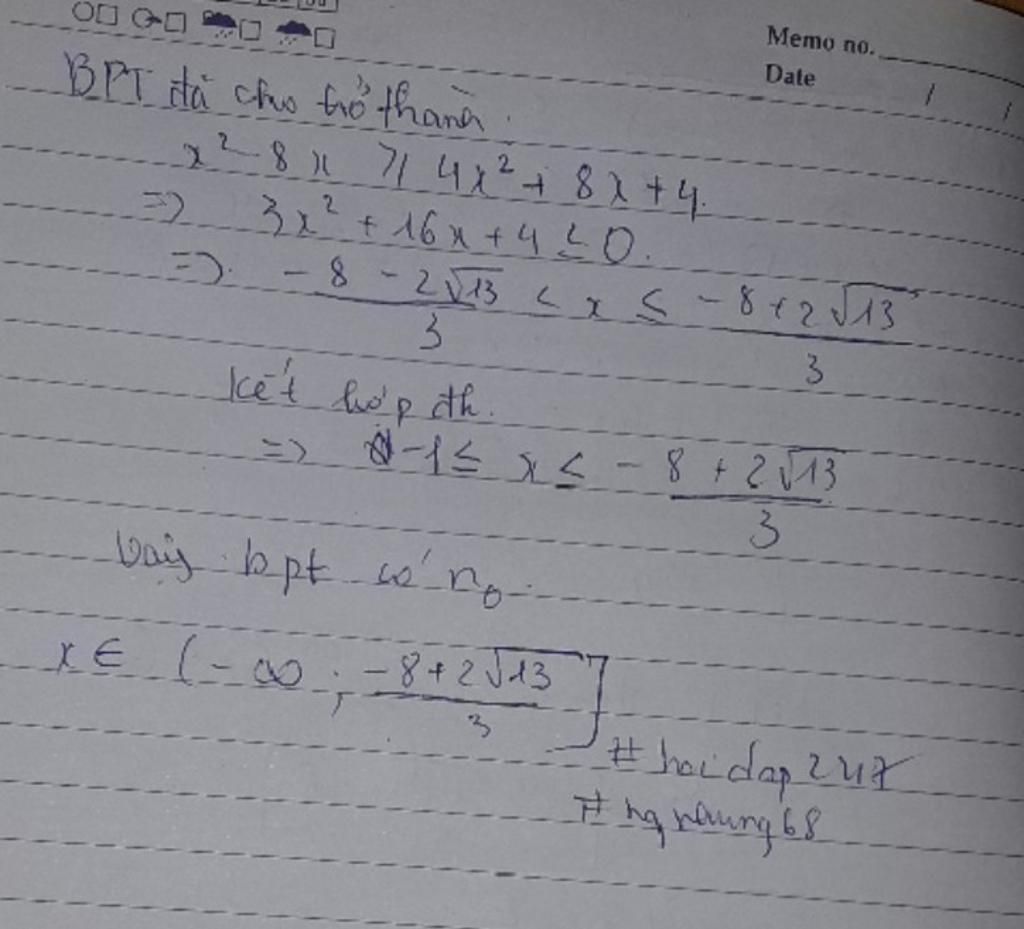 Memo no.
Date / /
BPT đã cho trở thành.
x² - 8x ≥ 4x² + 8x + 4.
=> 3x² + 16x + 4 ≤ 0.
=> (-8 - 2√13)/3 < x ≤ (-8 + 2√13)/3
Kết hợp đk.
=> -1 ≤ x ≤ (-8 + 2√13)/3
Vậy bpt có n₀.
x ∈ (-∞ ; (-8 + 2√13)/3]
# hoidap247